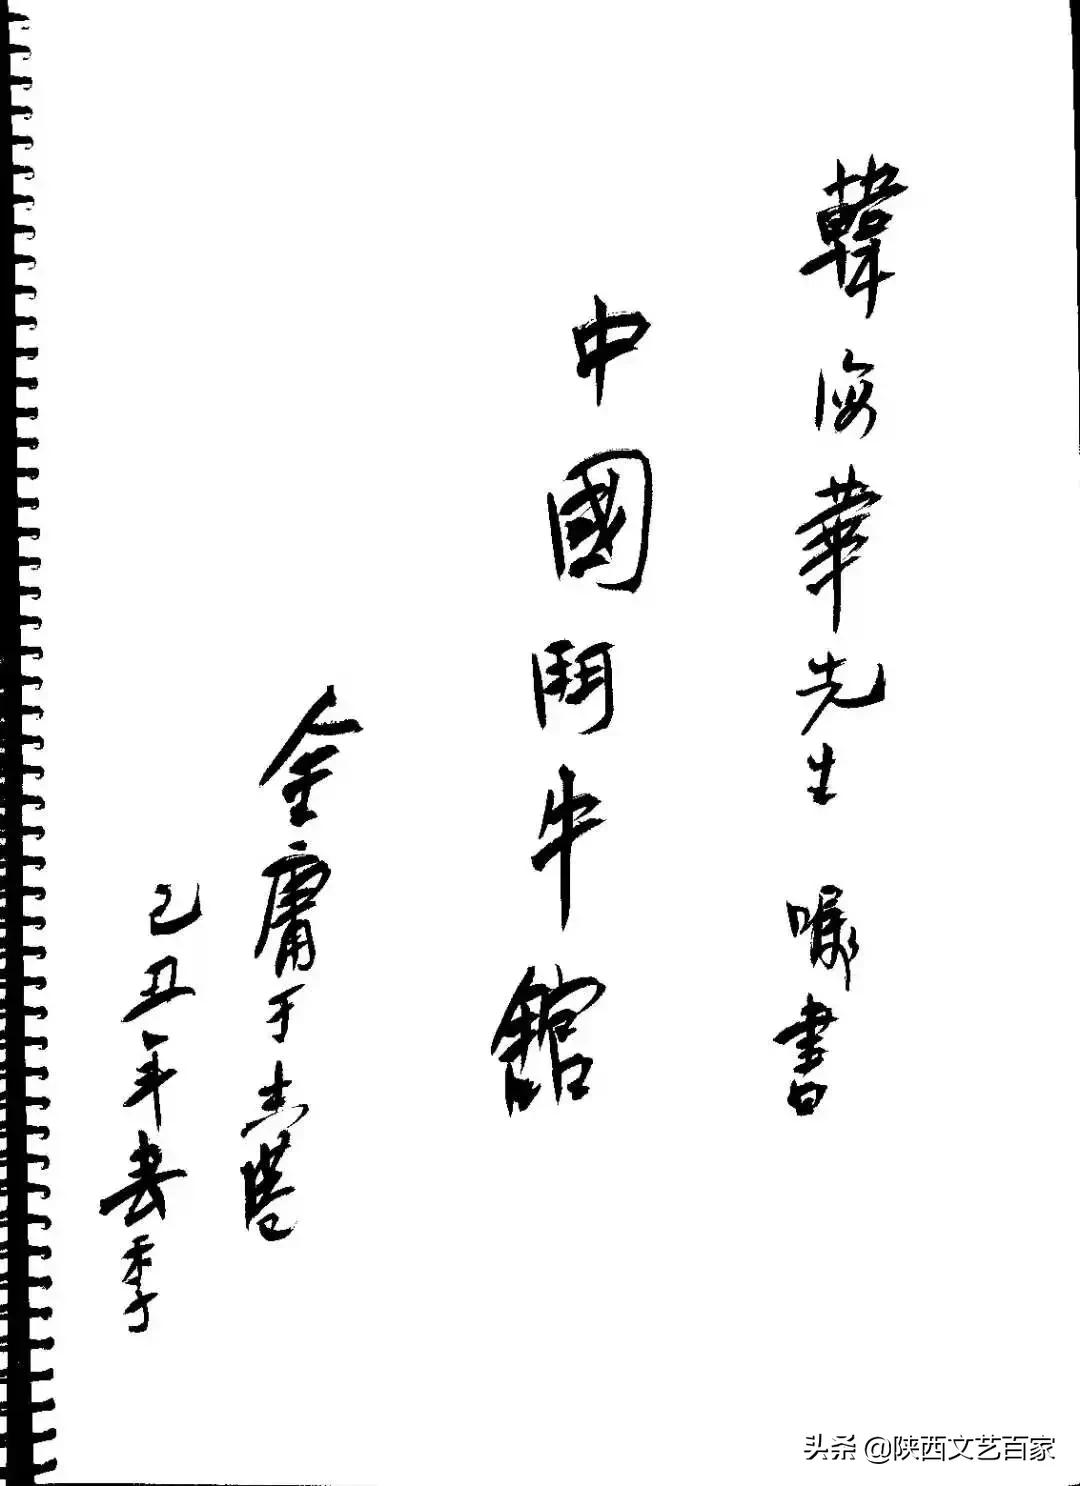 韓海華先生 嘱書
中國鬥牛館
金庸于香港
己丑年春季
头条 @陕西文艺百家